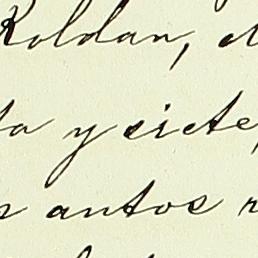 Roldan,
ta y siete,
antos